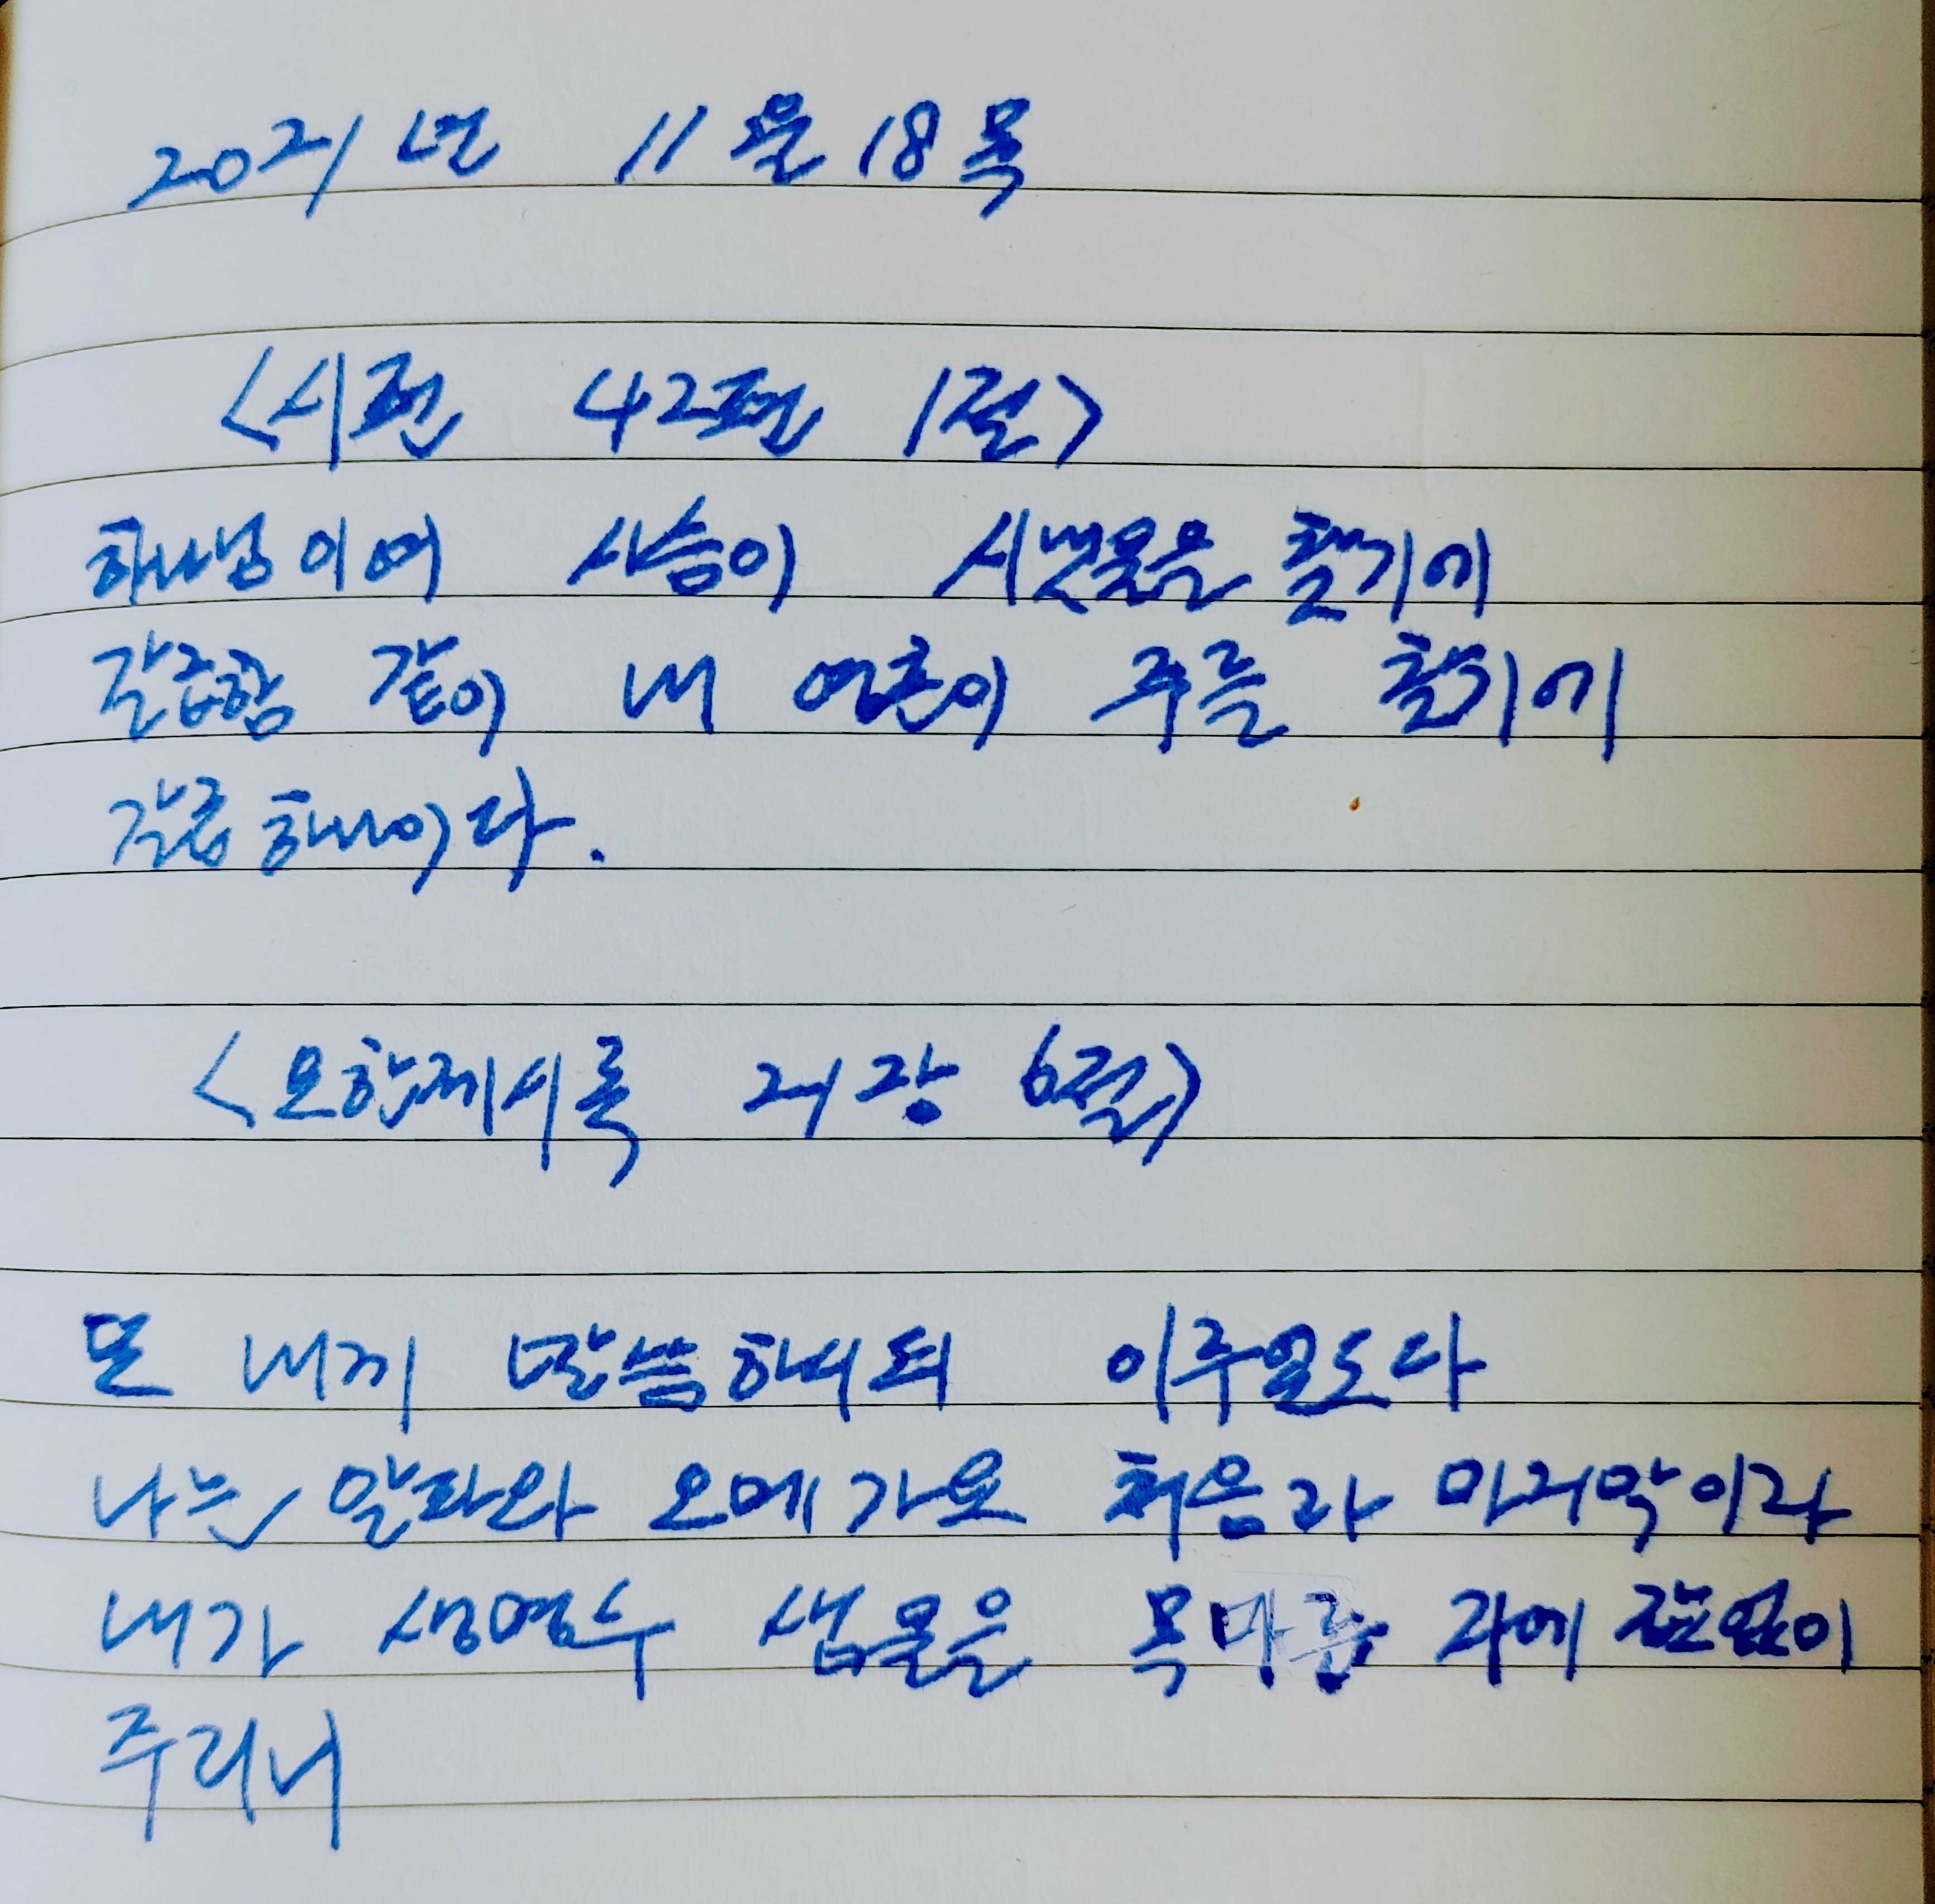 2021년 11월 18목
<시편 42편 1절>
하나님이여 사슴이 시냇물을 찾기에
갈급함 같이 내 영혼이 주를 찾기에
갈급하나이다.
<요한계시록 21장 6절>
또 내게 말씀하시되 이루었도다
나는 알파와 오메가요 처음과 마지막이라
내가 생명수 샘물을 목마른 자에 값없이
주리니